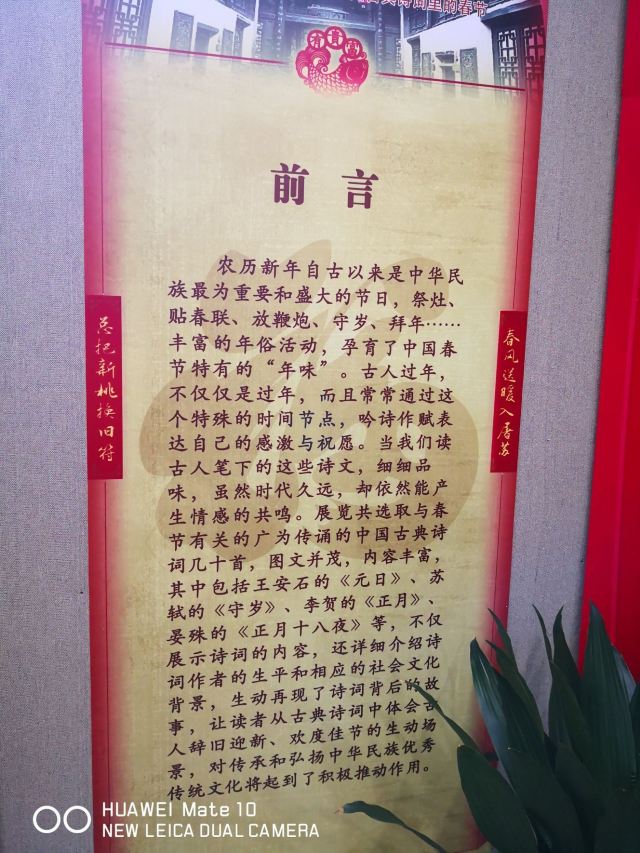 典诗词里的春节
有赏
前言
农历新年自古以来是中华民
族最为重要和盛大的节日，祭灶、
贴春联、放鞭炮、守岁、拜年……
丰富的年俗活动，孕育了中国春
节特有的“年味”。古人过年，
不仅仅是过年，而且常常通过这
个特殊的时间节点，吟诗作赋表
达自己的感激与祝愿。当我们读
古人笔下的这些诗文，细细品
味，虽然时代久远，却依然能产
生情感的共鸣。展览共选取与春
节有关的广为传诵的中国古典诗
词几十首，图文并茂，内容丰富，
其中包括王安石的《元日》、苏
轼的《守岁》、李贺的《正月》、
晏殊的《正月十八夜》等，不仅
展示诗词的内容，还详细介绍诗
词作者的生平和相应的社会文化
背景，生动再现了诗词背后的故
事，让读者从古典诗词中体会古
人辞旧迎新、欢度佳节的生动场
景，对传承和弘扬中华民族优秀
传统文化将起到了积极推动作用。
总把新桃换旧符
春风送暖入屠苏
HUAWEI Mate 10
NEW LEICA DUAL CAMERA